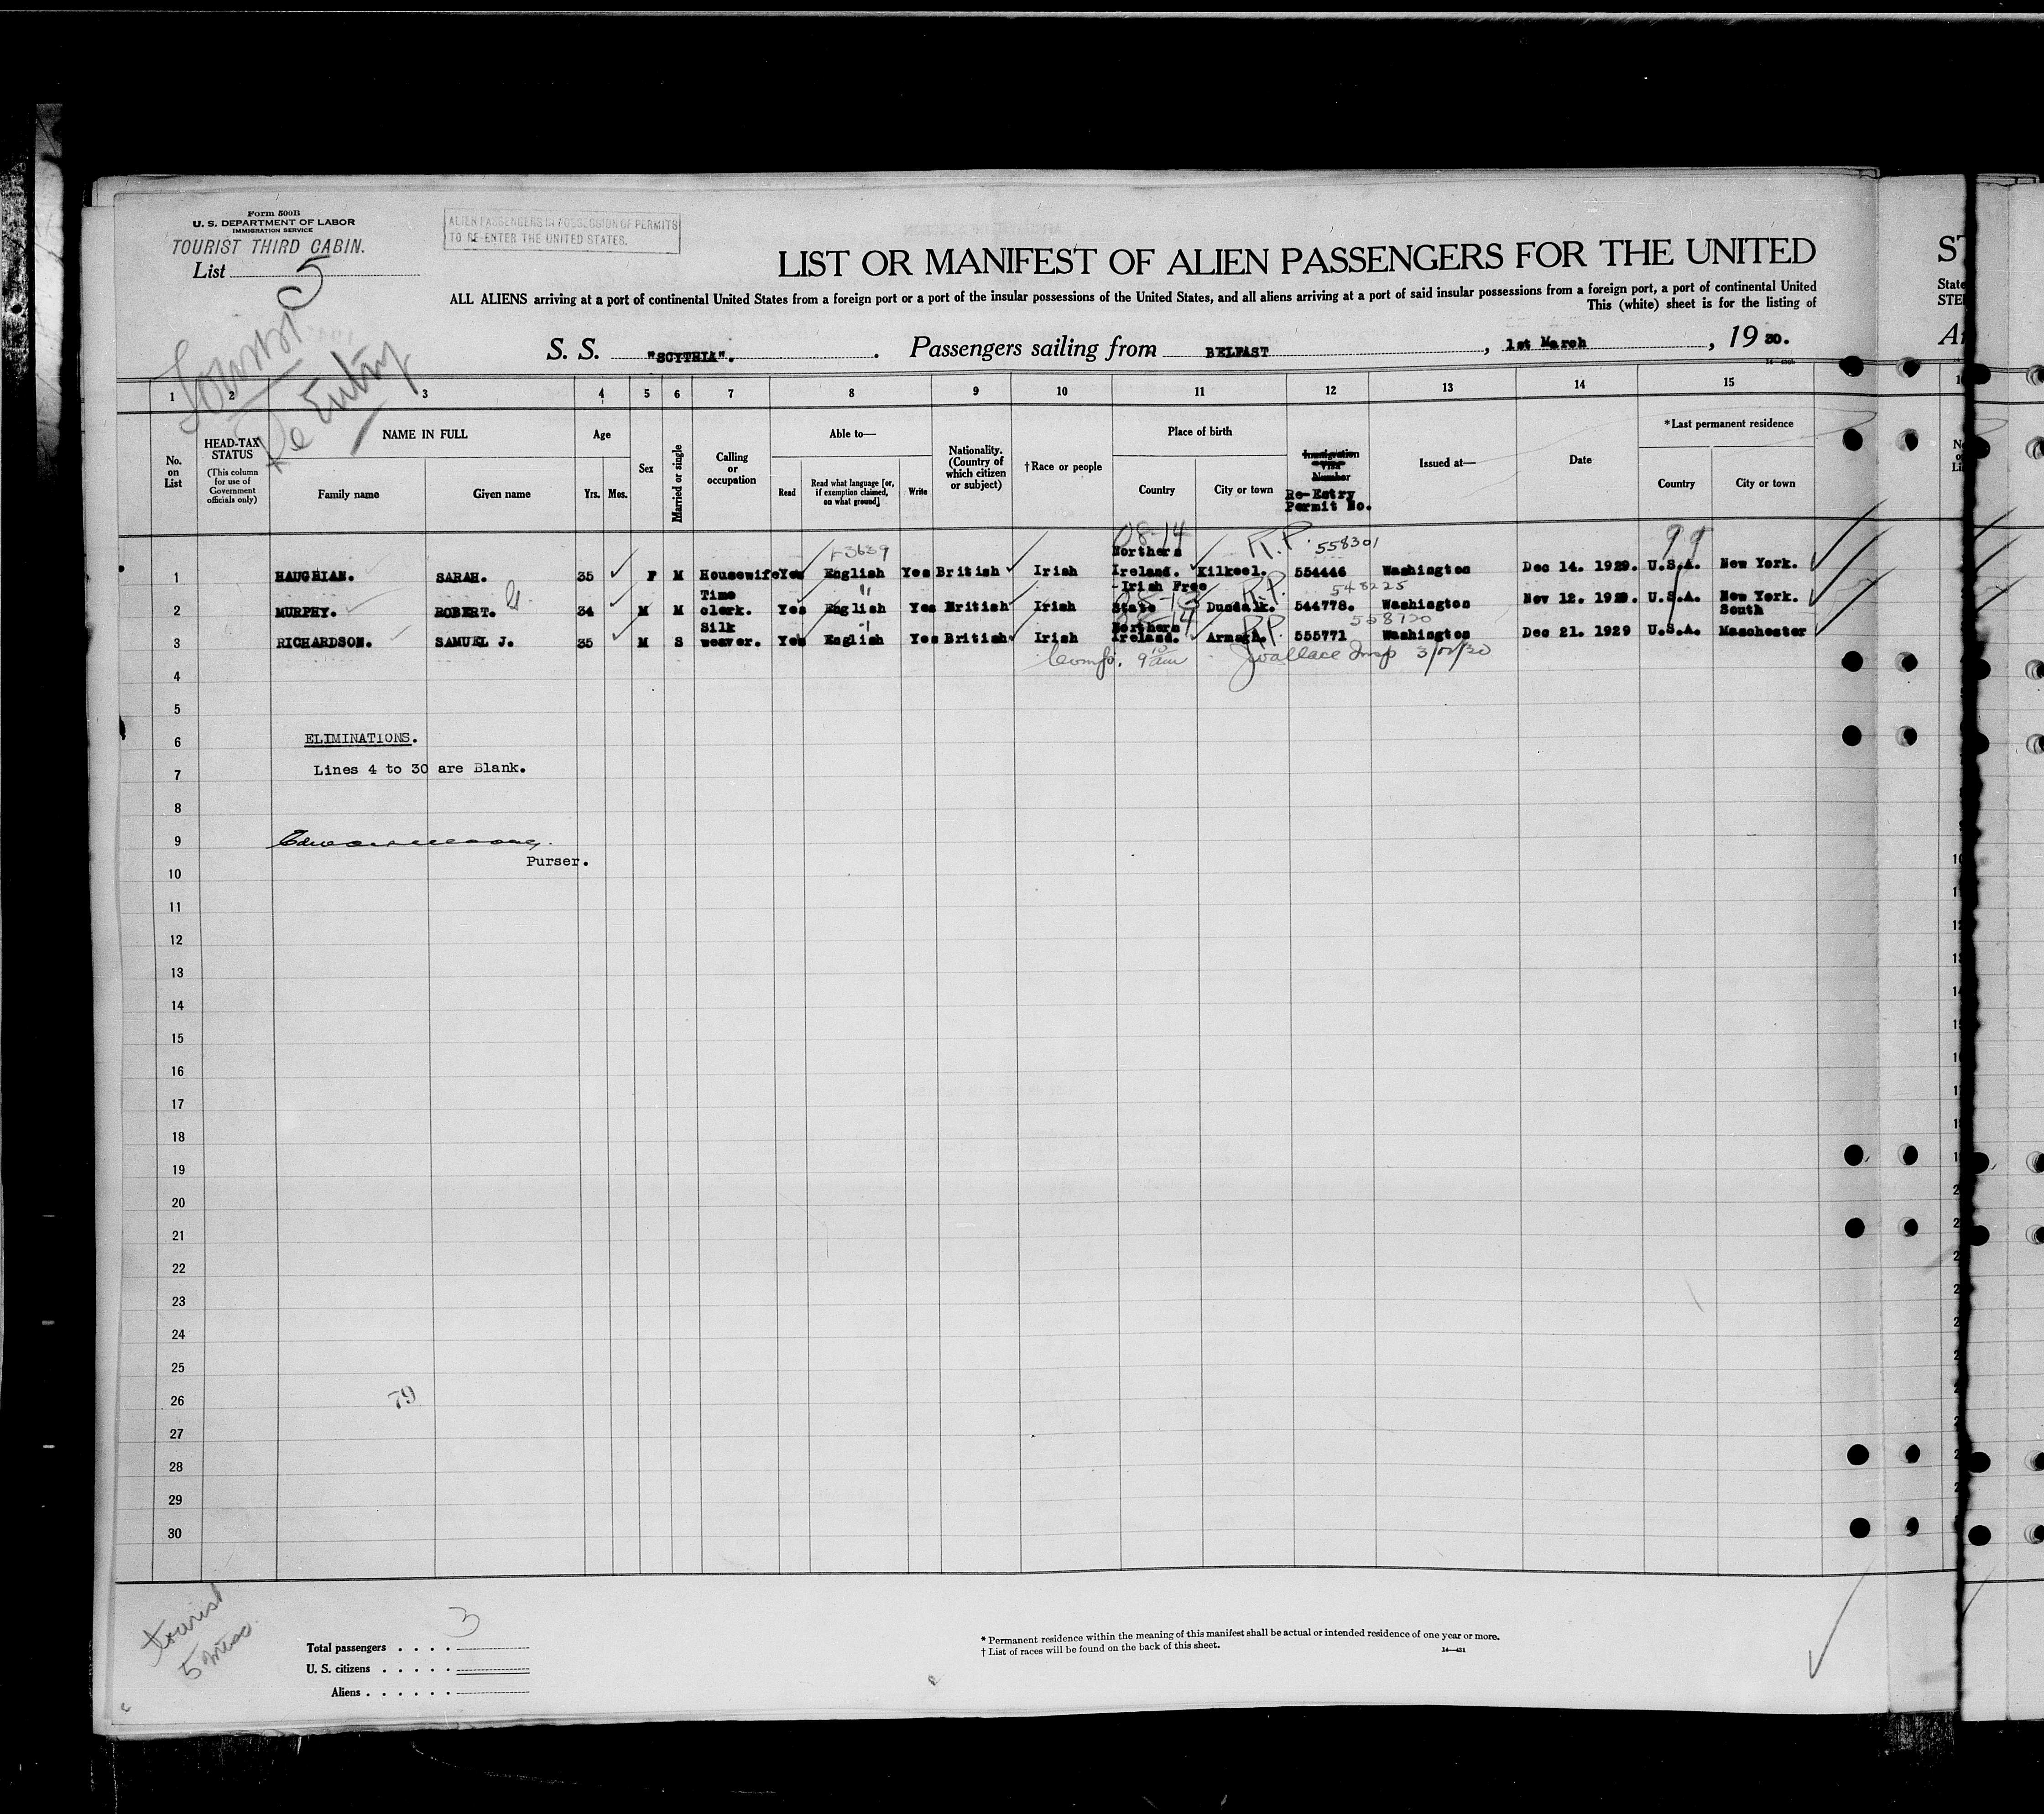 Form 500B
U. S. DEPARTMENT OF LABOR
IMMIGRATION SERVICE
TOURIST THIRD CABIN.
List 5
ALIEN PASSENGERS IN POSSESSION OF PERMITS
TO RE-ENTER THE UNITED STATES.
Tourist
Re Entry
LIST OR MANIFEST OF ALIEN PASSENGERS FOR THE UNITED
ALL ALIENS arriving at a port of continental United States from a foreign port or a port of the insular possessions of the United States, and all aliens arriving at a port of said insular possessions from a foreign port, a port of continental United
This (white) sheet is for the listing of
S. S. "SCYTHIA". Passengers sailing from BELFAST, 1st March, 19 30.
1 2 3 4 5 6 7 8 9 10 11 12 13 14 15
No. on List
HEAD-TAX STATUS
(This column for use of Government officials only)
NAME IN FULL
Family name Given name
Age
Yrs. Mos.
Sex
Married or single
Calling or occupation
Able to—
Read
Read what language [or, if exemption claimed, on what ground]
Write
Nationality. (Country of which citizen or subject)
†Race or people
Place of birth
Country City or town
Immigration Visa Number
Re-Entry Permit No.
Issued at—
Date
*Last permanent residence
Country City or town
08-14 R.P. 558301 99
F3639
1 HAUGHIAN. SARAH. 35 F M Housewife Yes English Yes British Irish Northern Ireland. Kilkeel. 554446 Washington Dec 14. 1929. U.S.A. New York.
" 08-13 R.P. 548225
2 MURPHY. ROBERT. G. 34 M M Time clerk. Yes English Yes British Irish -Irish Free State Dundalk. 544778. Washington Nov 12. 1929. U.S.A. New York.
" 08-14 R.P.
3 RICHARDSON. SAMUEL J. 35 M S Silk weaver. Yes English Yes British Irish Northern Ireland. Armagh. 555771 Washington Dec 21. 1929 U.S.A. South Manchester
9 10 am Wallace Insp
4
5
6 ELIMINATIONS.
7 Lines 4 to 30 are Blank.
8
9
Purser.
10
11
12
13
14
15
16
17
18
19
20
21
22
23
24
25
26 79
27
28
29
30
tourist
5
Total passengers . . . . 3
U. S. citizens . . . . .
Aliens . . . . . .
* Permanent residence within the meaning of this manifest shall be actual or intended residence of one year or more.
† List of races will be found on the back of this sheet.
14—431